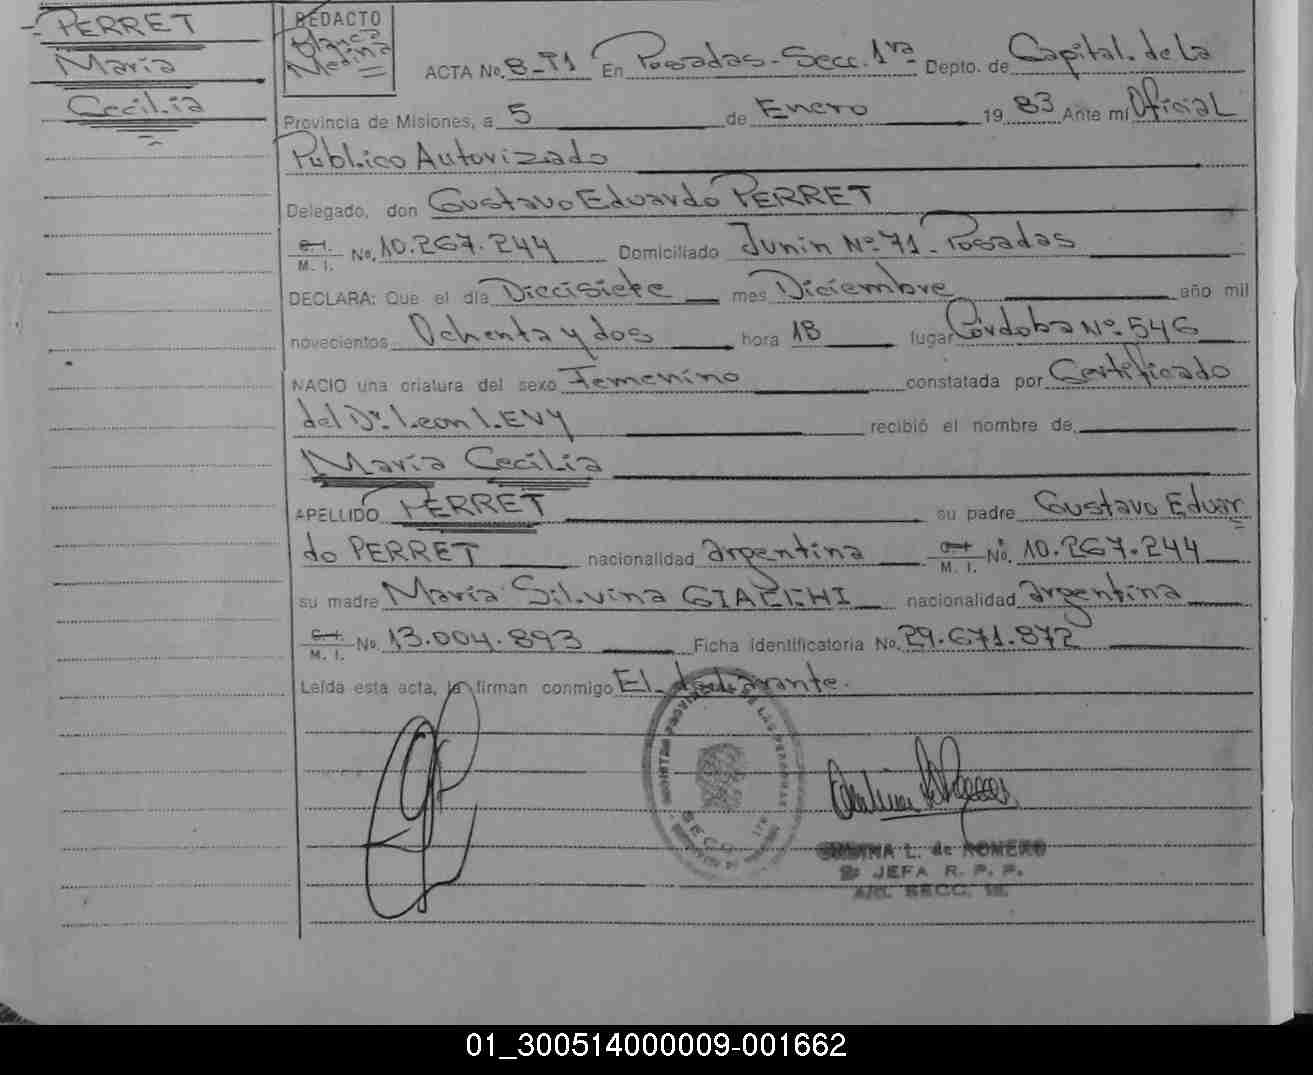 PERRET
María
Cecilia
REDACTO
Blanca
Medina
ACTA No. 8-T1 En Posadas-Secc. 1ra Depto. de Capital. de La
Provincia de Misiones, a 5 de Enero 19 83 Ante mí Oficial
Público Autorizado
Delegado, don Gustavo Eduardo PERRET
M. I. No. 10.267.244 Domiciliado Junin Nº 71 - Posadas
DECLARA: Que el día Diecisiete mes Diciembre año mil
novecientos Ochenta y dos hora 18 lugar Córdoba Nº 546
NACIO una criatura del sexo Femenino constatada por Certificado
del Dr. Leon LEVY recibió el nombre de
María Cecilia
APELLIDO PERRET su padre Gustavo Eduar
do PERRET nacionalidad argentina M. I. No. 10.267.244
su madre María Silvina nacionalidad argentina
M. I. No. 13.004.893 Ficha identificatoria No. 29.671.872
Leída esta acta, la firman conmigo El declarante.
L. de ROMERO
JEFA R. P. P.
SECC.
01_300514000009-001662